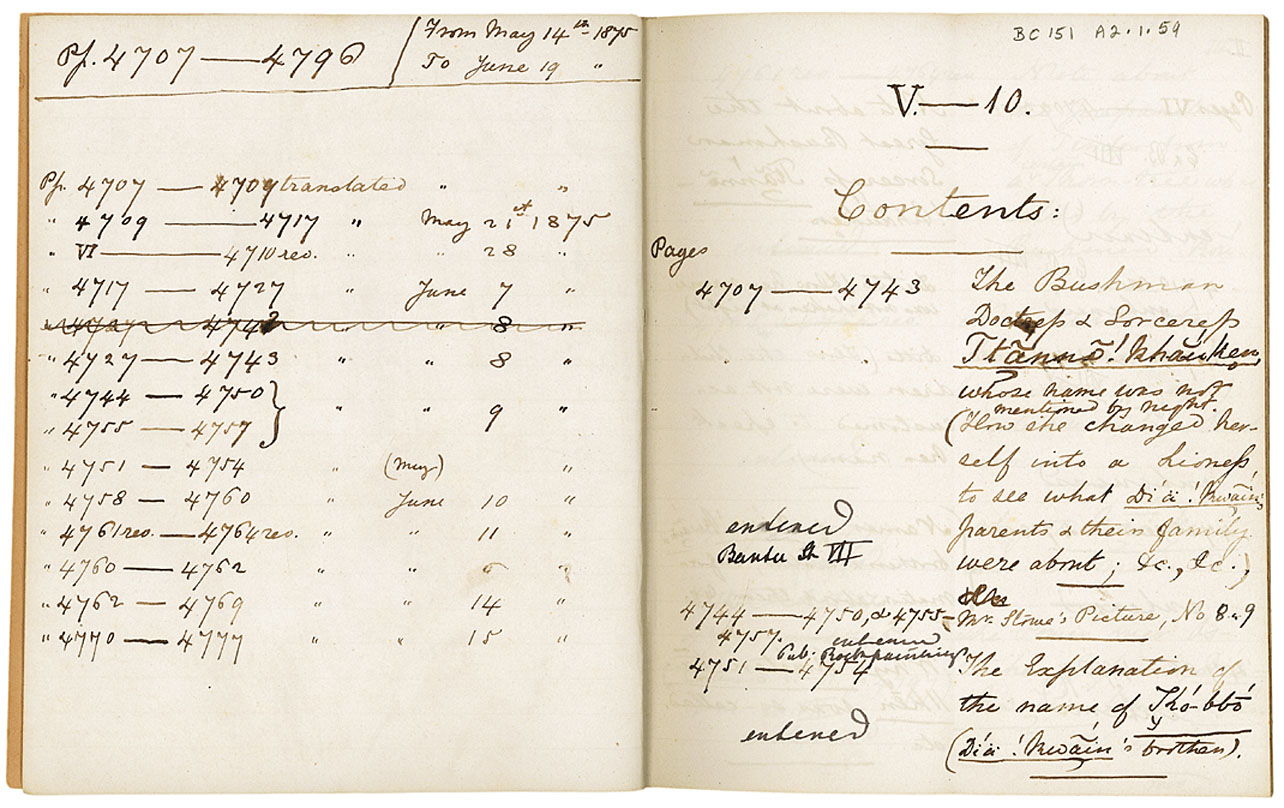 Pp. 4707 — 4796
(From May 14th 1875
To June 19 "
Pp. 4707 — 4709 translated " "
" 4709 — 4717 " May 21st 1875
" VI — 4710 rev. " " 28 "
" 4717 — 4727 " June 7 "
" 4727 — 4743 " " 8 "
" 4727 — 4743 " " 8 "
" 4744 — 4750 }
" 4755 — 4757 } " " 9 "
" 4751 — 4754 " (May) "
" 4758 — 4760 " June 10 "
" 4761 rev. — 4764 rev. " " 11 "
" 4760 — 4762 " " " "
" 4762 — 4769 " " 14 "
" 4770 — 4777 " " 15 "
BC 151 A2.1.59
V. — 10.
Contents:
Pages
4707 — 4743 The Bushman
Doctress & Sorceress
Ttãnnõ! khãuken
whose name was not
mentioned by night.
(How she changed her-
self into a Lioness,
to see what Día! kwãin's
parents & their family
were about; &c., &c.)
entered
Bantu St. VII
4744 — 4750, & 4755 – Mr. Stowe's Picture, No 8 & 9
4757. entered
Pub. Rockpaintings
4751 — 4754 The Explanation of
the name of Tkó-bbó
(Día! kwãin's brother).
entered